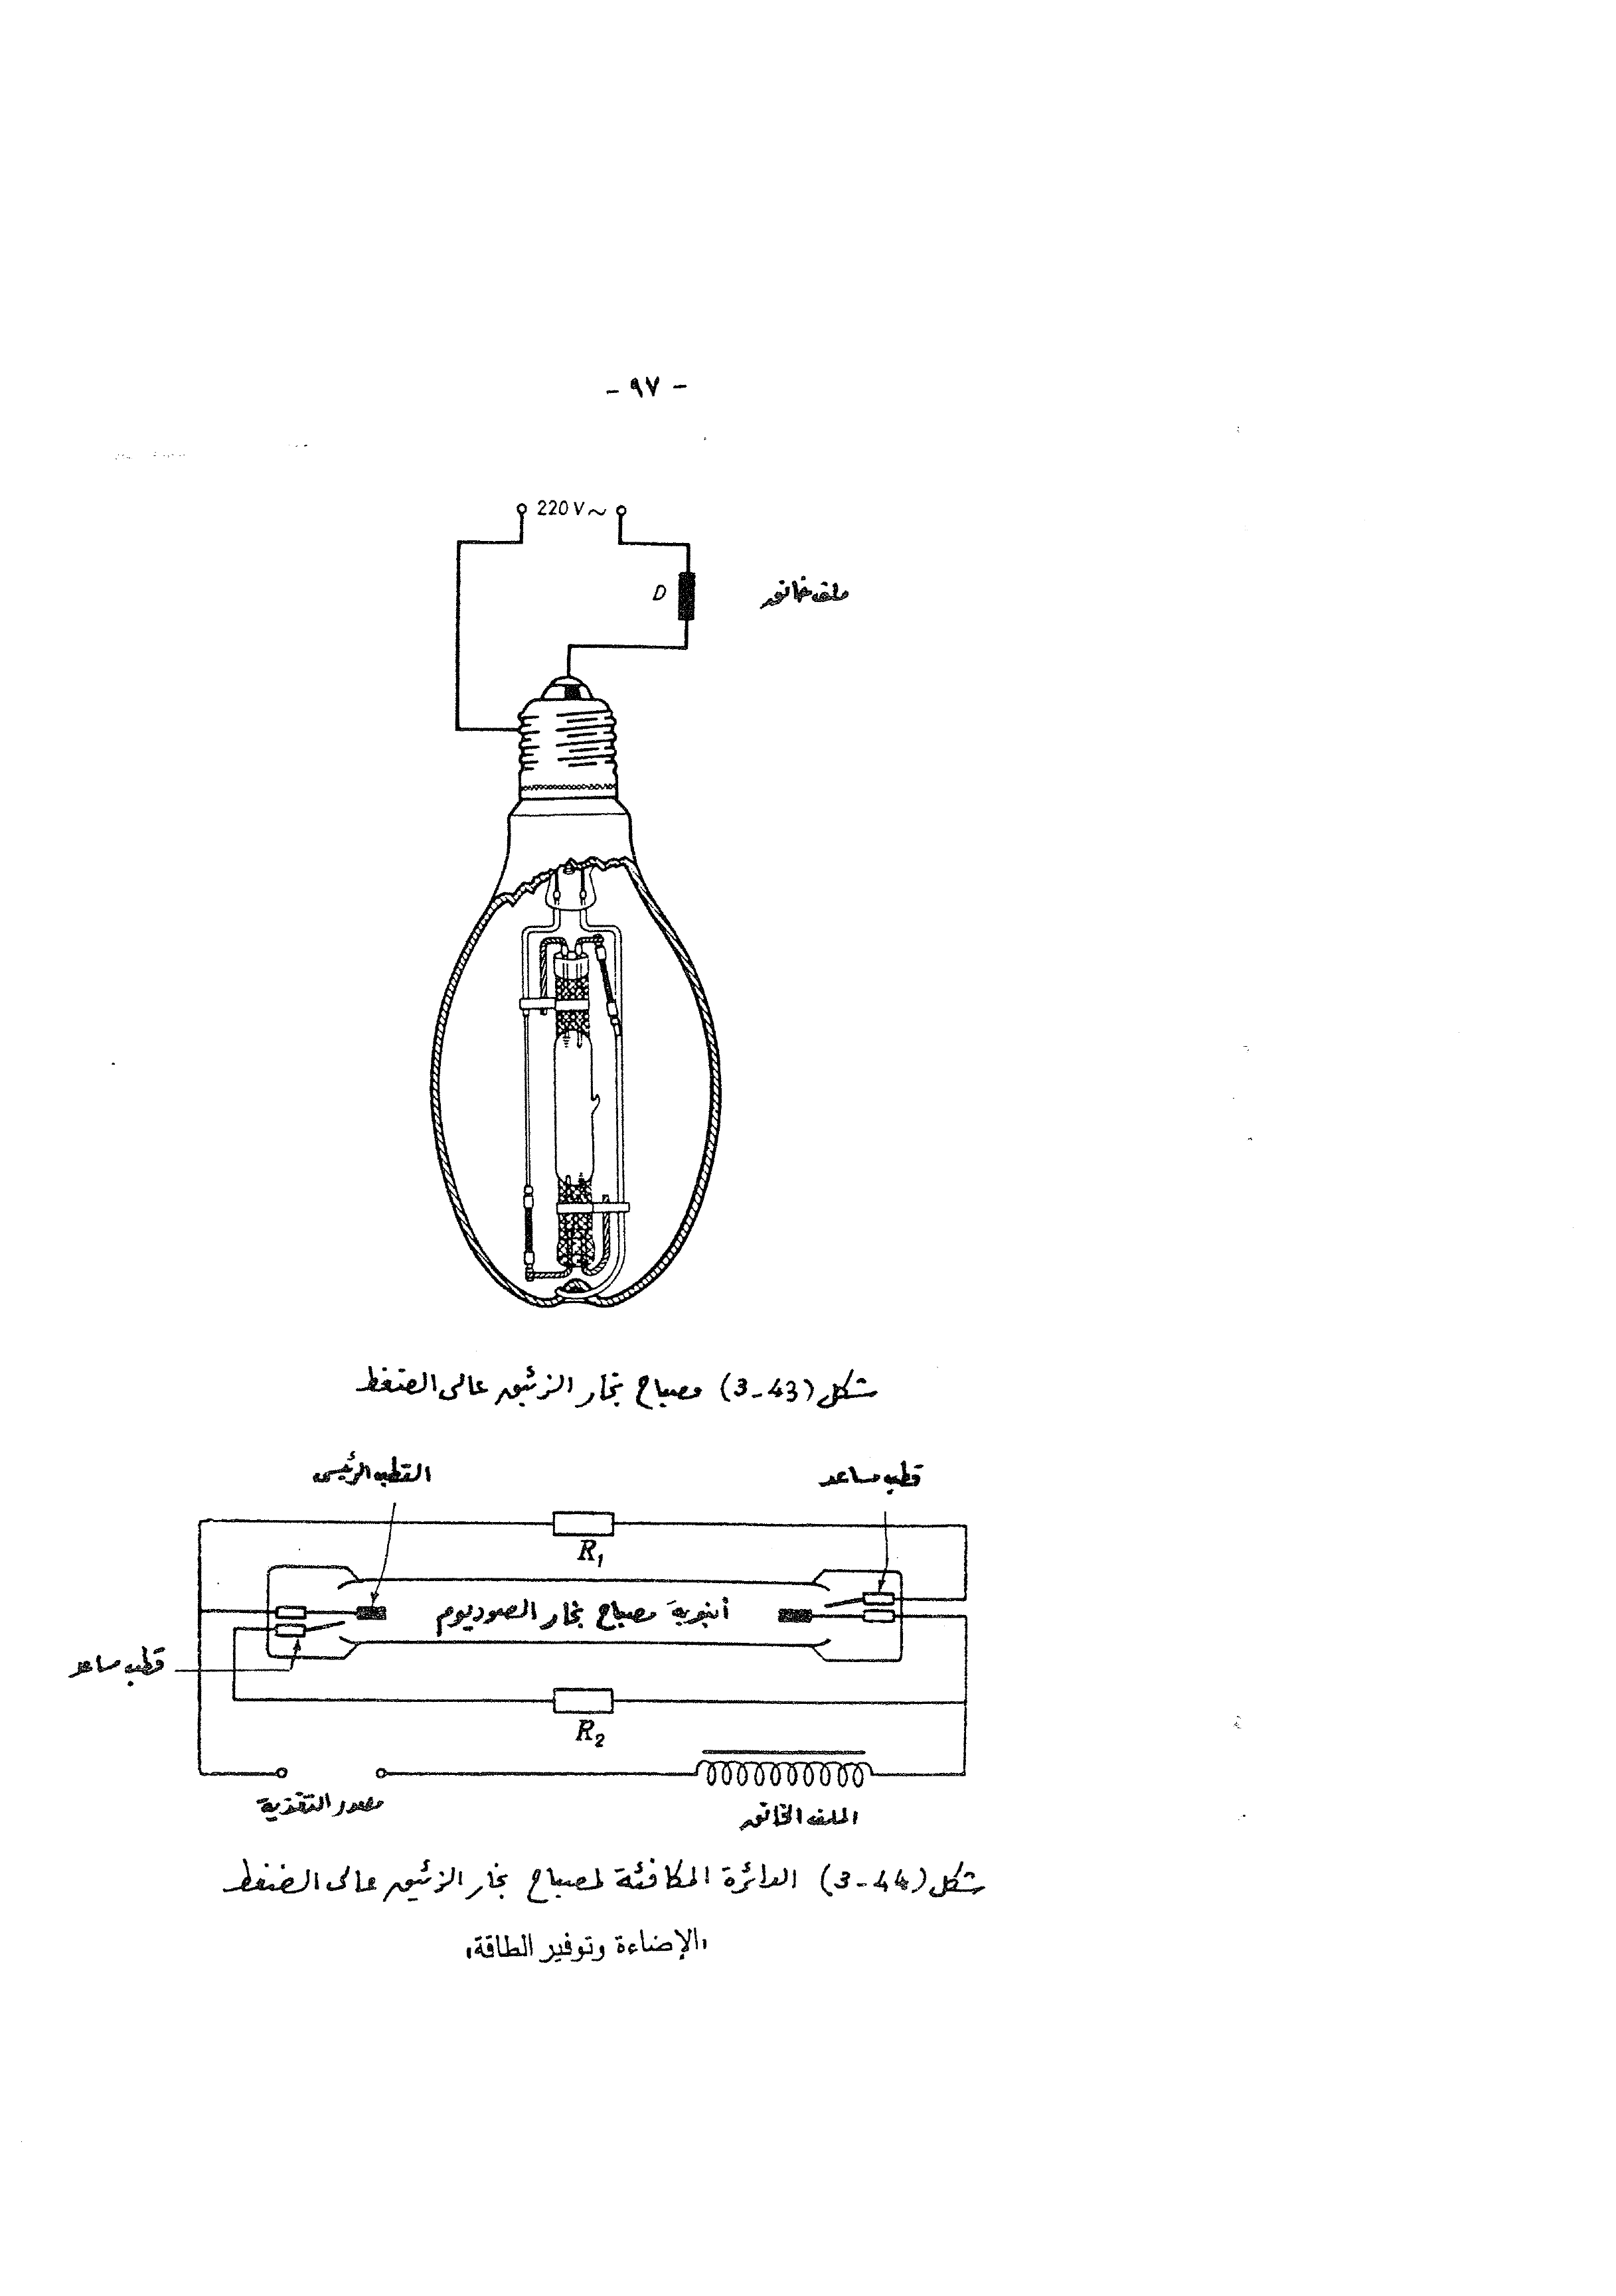 - ٩٧ -
220 V ~
D
ملف خانق
شكل (3-43) مصباح بخار الزئبق عالى الضغط
القطب الرئيسى
قطب مساعد
R₁
أنبوبة مصباح بخار الصوديوم
قطب مساعد
R₂
مصدر التغذية
الملف الخانق
شكل (3-44) الدائرة المكافئة لمصباح بخار الزئبق عالى الضغط
،الإضاءة وتوفير الطاقة،